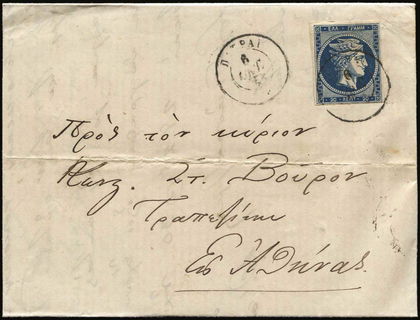 ΠΑΤΡΑΙ
6
ΕΛΛ. ΓΡΑΜΜ.
20 ΛΕΠΤ. 20
Πρὸς τὸν κύριον
Κωνζ. Στ. Βοῦρον
Τραπεζίτην
Εἰς Ἀθήνας.